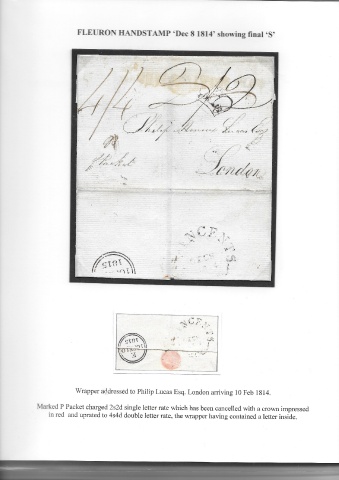 FLEURON HANDSTAMP ‘Dec 8 1814’ showing final ‘S’
4/4 2/2
Philip Lucas Esqr
P Packet
London
NCENTS
1815
NCENTS
1815
Wrapper addrossed to Philip Lucas Esq. London arriving 10 Feb 1814.
Marked P Packet charged 2s2d single letter rate which has been cancelled with a crown impressed
in red and uprated to 4s4d double letter rate, the wrapper having contained a letter inside.